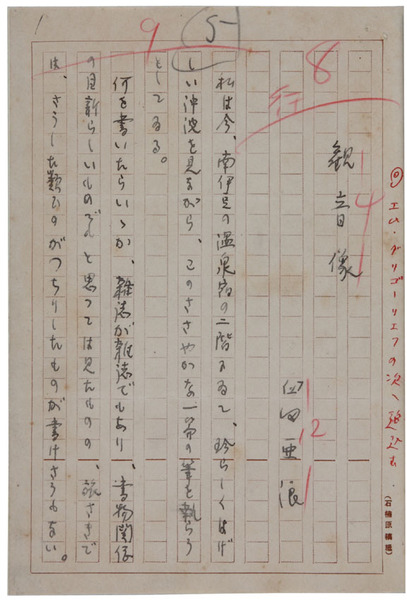 ◎エム・グリゴーリエフの次へ追込む
8行
観音像
臼田亜浪
私は今、南伊豆の温泉宿の二階にゐて、珍らしくはげ
しい沖浪を見ながら、このささやかな一篇の筆を執らう
としてゐる。
何を書いたらいゝか、雑誌が雑誌でもあり、書物関係
の目新らしいものでもと思つては見たものの、旅さきで
は、さうした類ひのがつちりしたものが書けさうもない。
(石楠原稿紙)
1
9
(5)
4
12